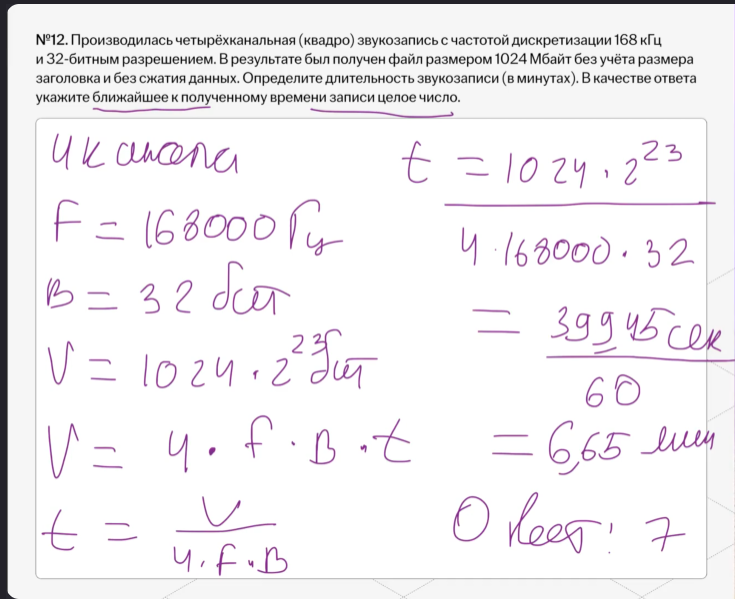 №12. Производилась четырёхканальная (квадро) звукозапись с частотой дискретизации 168 кГц
и 32-битным разрешением. В результате был получен файл размером 1024 Мбайт без учёта размера
заголовка и без сжатия данных. Определите длительность звукозаписи (в минутах). В качестве ответа
укажите ближайшее к полученному времени записи целое число.
4 канала
F = 168000 Гц
B = 32 бит
V = 1024 · 2^23 бит
V = 4 · f · B · t
t = V
4 · f · B
t = 1024 · 2^23
4 · 168000 · 32
= 399,45 сек
60
= 6,65 мин
Ответ: 7